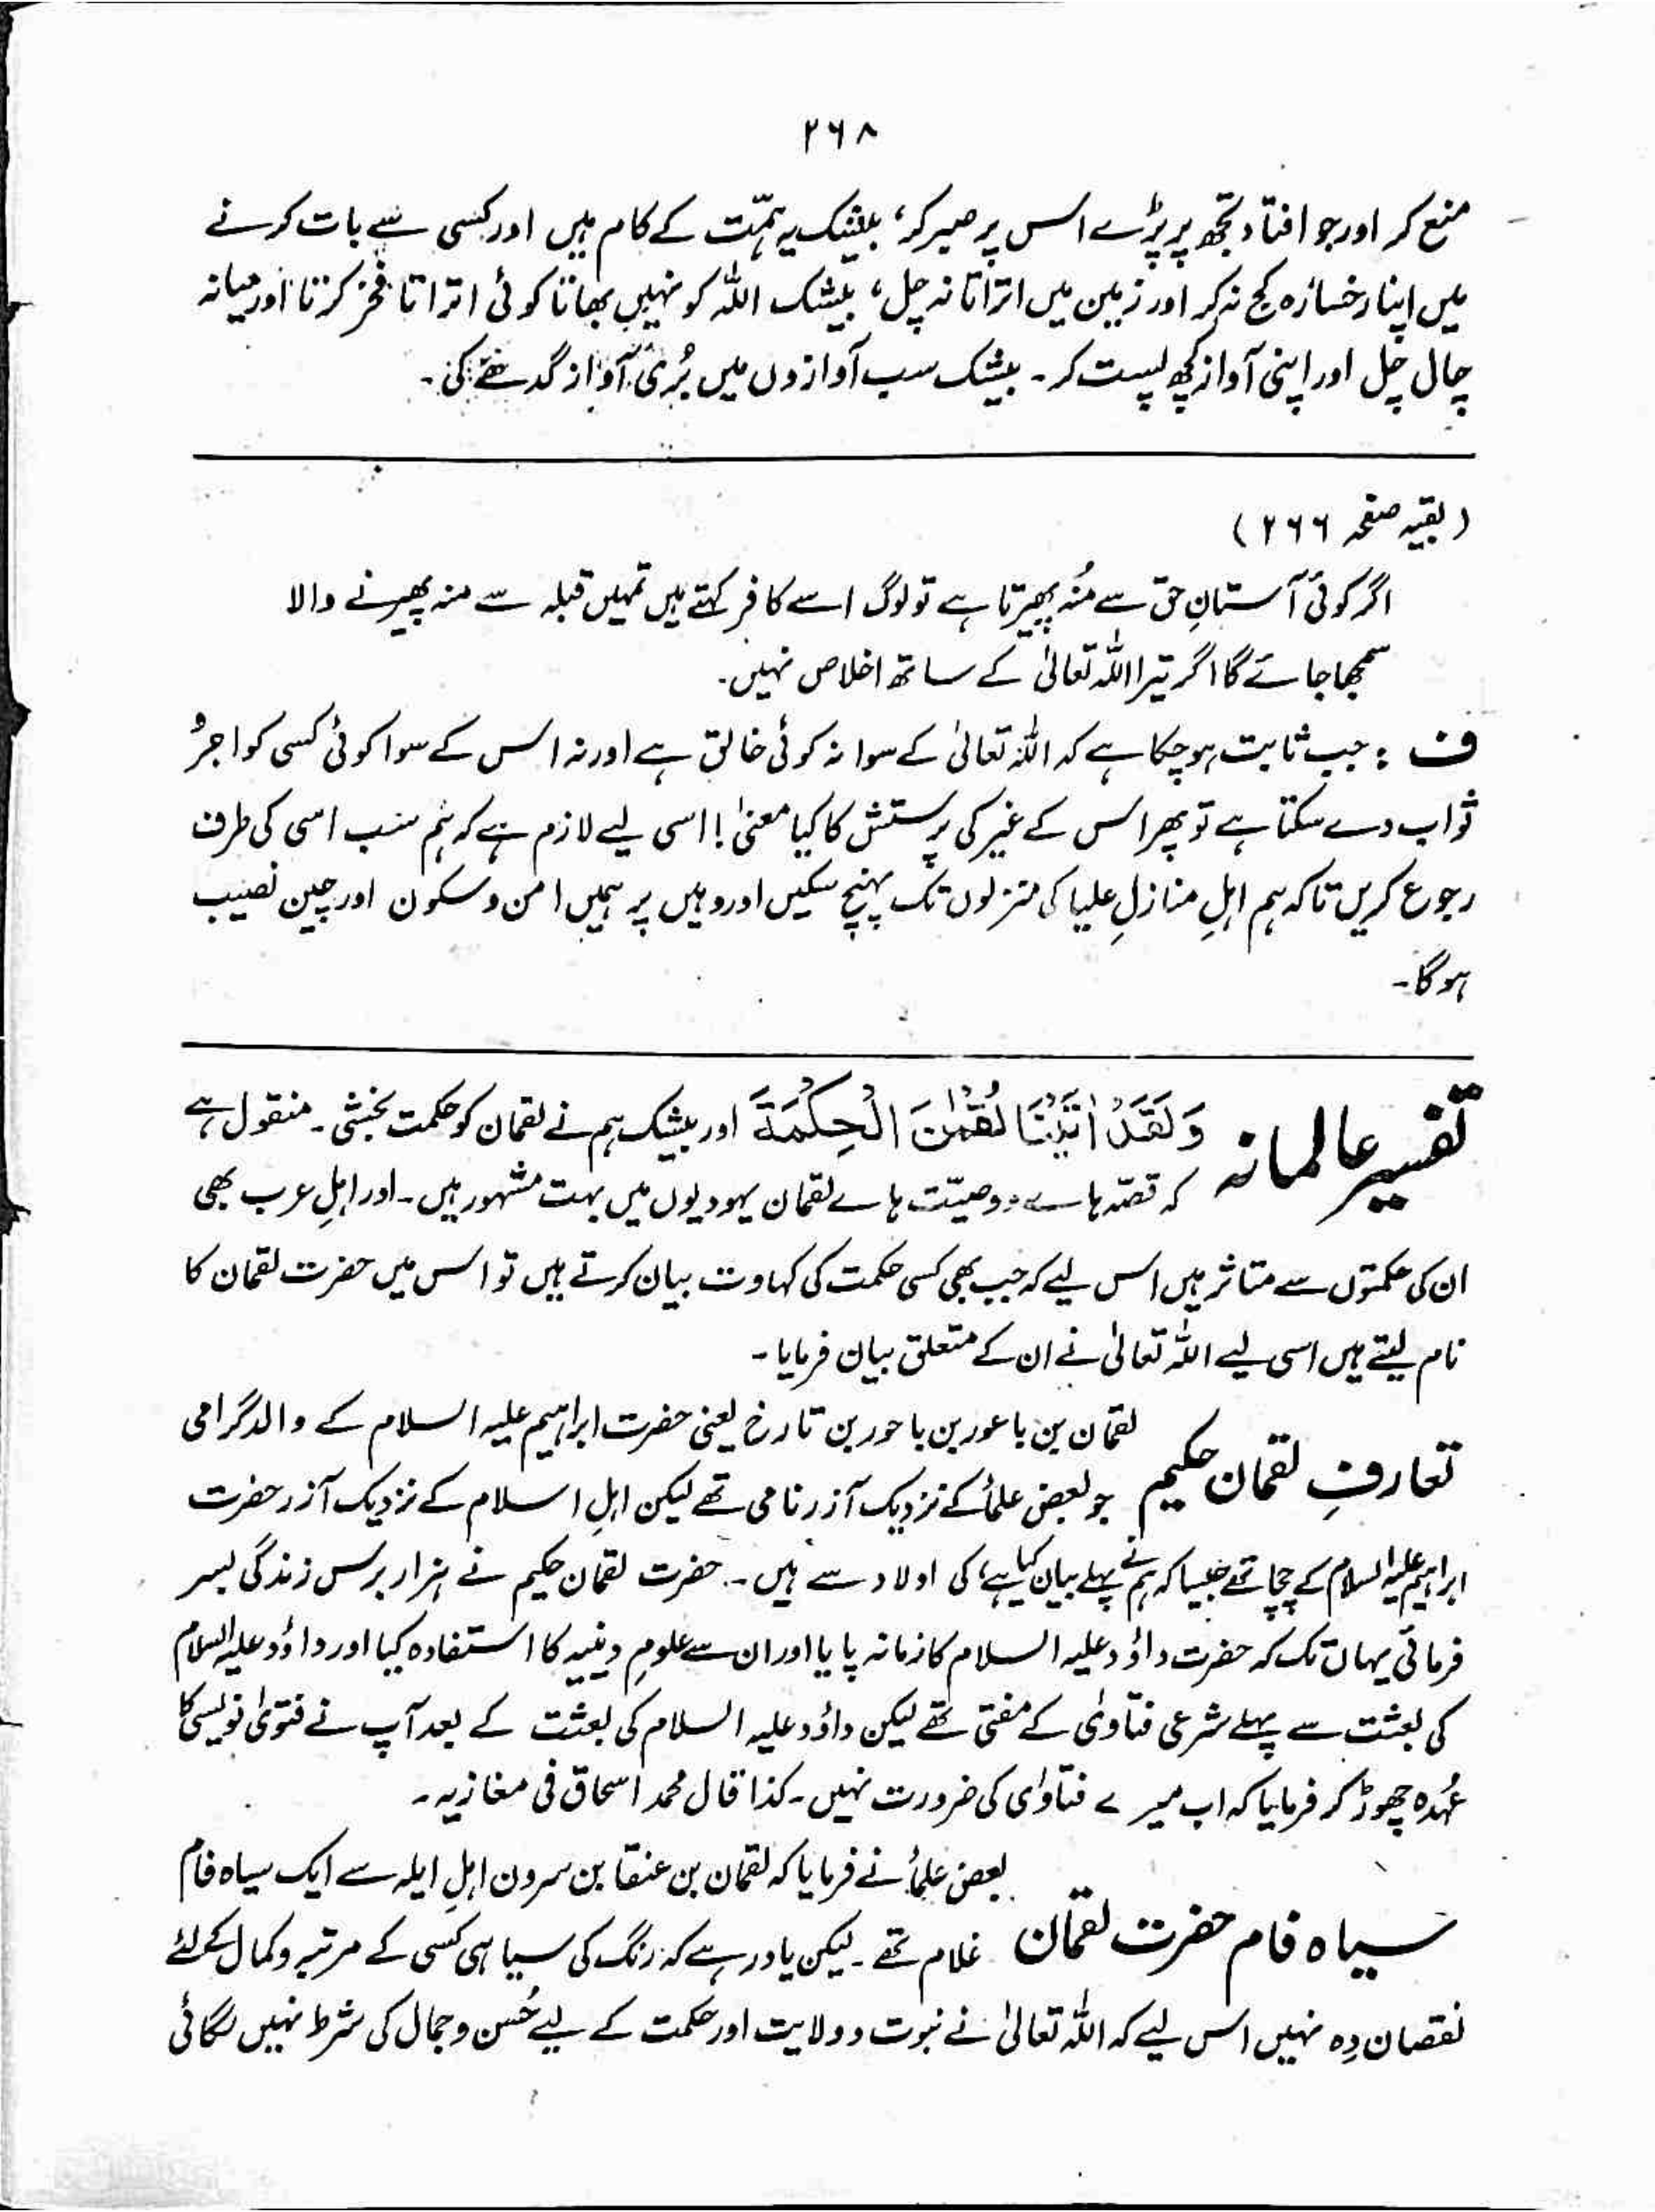 ۲۶۸
منع کر اور جو افتاد تجھ پر پڑے اس پر صبر کر، بیشک یہ ہمّت کے کام ہیں اور کسی سے بات کرنے
میں اپنا رخسارہ کج نہ کر اور زمین میں اتراتا نہ چل، بیشک اللہ کو نہیں بھاتا کوئی اتراتا فخر کرتا اور میانہ
چال چل اور اپنی آواز کچھ پست کر ۔ بیشک سب آوازوں میں بُری آواز گدھے کی ۔
(بقیہ صفحہ ۲۶۶)
اگر کوئی آستانِ حق سے مُنہ پھیرتا ہے تو لوگ اسے کافر کہتے ہیں تمہیں قبلہ سے منہ پھیرنے والا
سمجھا جائے گا اگر تیرا اللہ تعالیٰ کے ساتھ اخلاص نہیں۔
ف : جب ثابت ہوچکا ہے کہ اللہ تعالیٰ کے سوا نہ کوئی خالق ہے اور نہ اس کے سوا کوئی کسی کو اجر و
ثواب دے سکتا ہے تو پھر اس کے غیر کی پرستش کا کیا معنیٰ! اسی لیے لازم ہے کہ ہم سب اسی کی طرف
رجوع کریں تاکہ ہم اہلِ منازلِ علیا کی منزلوں تک پہنچ سکیں اور وہیں پر ہمیں امن و سکون اور چین نصیب
ہوگا۔
تفسیر عالمانہ وَلَقَدْ اٰتَیْنَا لُقْمٰنَ الْحِکْمَةَ اور بیشک ہم نے لقمان کو حکمت بخشی ۔ منقول ہے
کہ قصّہ ہائے و وصیّت ہائے لقمان یہودیوں میں بہت مشہور ہیں ۔ اور اہلِ عرب بھی
ان کی حکمتوں سے متاثر ہیں اس لیے کہ جب بھی کسی حکمت کی کہاوت بیان کرتے ہیں تو اس میں حضرت لقمان کا
نام لیتے ہیں اسی لیے اللہ تعالیٰ نے ان کے متعلق بیان فرمایا ۔
تعارفِ لقمان حکیم لقمان بن باعور بن باحور بن تارخ یعنی حضرت ابراہیم علیہ السلام کے والد گرامی
جو بعض علماء کے نزدیک آزر نامی تھے لیکن اہلِ اسلام کے نزدیک آزر حضرت
ابراہیم علیہ السلام کے چچا تھے جیسا کہ ہم نے پہلے بیان کیا ہے، کی اولاد سے ہیں ۔ حضرت لقمان حکیم نے ہزار برس زندگی بسر
فرمائی یہاں تک کہ حضرت داؤد علیہ السلام کا زمانہ پایا اور ان سے علومِ دینیہ کا استفادہ کیا اور داؤد علیہ السلام
کی بعثت سے پہلے شرعی فتاوٰی کے مفتی تھے لیکن داؤد علیہ السلام کی بعثت کے بعد آپ نے فتوٰی نویسی کا
عُہدہ چھوڑ کر فرمایا کہ اب میرے فتاوٰی کی ضرورت نہیں ۔ کذا قال محمد اسحاق فی مغازیہ ۔
بعض علماء نے فرمایا کہ لقمان بن عنقا بن سرون اہلِ ایلہ سے ایک سیاہ فام
سیاہ فام حضرت لقمان غلام تھے ۔ لیکن یاد رہے کہ رنگ کی سیاہی کسی کے مرتبہ و کمال کے لئے
نقصان دِہ نہیں اس لیے کہ اللہ تعالیٰ نے نبوت و ولایت اور حکمت کے لیے حُسن و جمال کی شرط نہیں لگائی